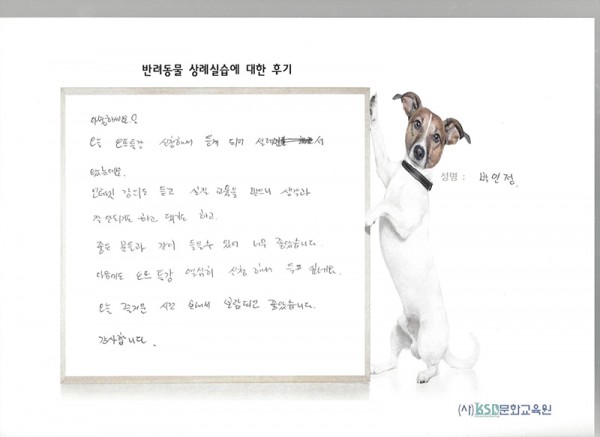 반려동물 상례실습에 대한 후기
안녕하세요
오늘 오프특강 신청해서 듣게 되어
인터넷 강의도 듣고 실직 교육을 받으니 생각과
안되기도 하고 하고.
좋은 분들과 같이 들을수 있어 너무 좋았습니다.
다음에도 오프특강 열심히 신청 해서 듣고 싶네요.
오늘 즐거운 시간 보내서 보람되고 좋았습니다.
감사합니다.
성명 : 박인정
(사)KSD문화교육원